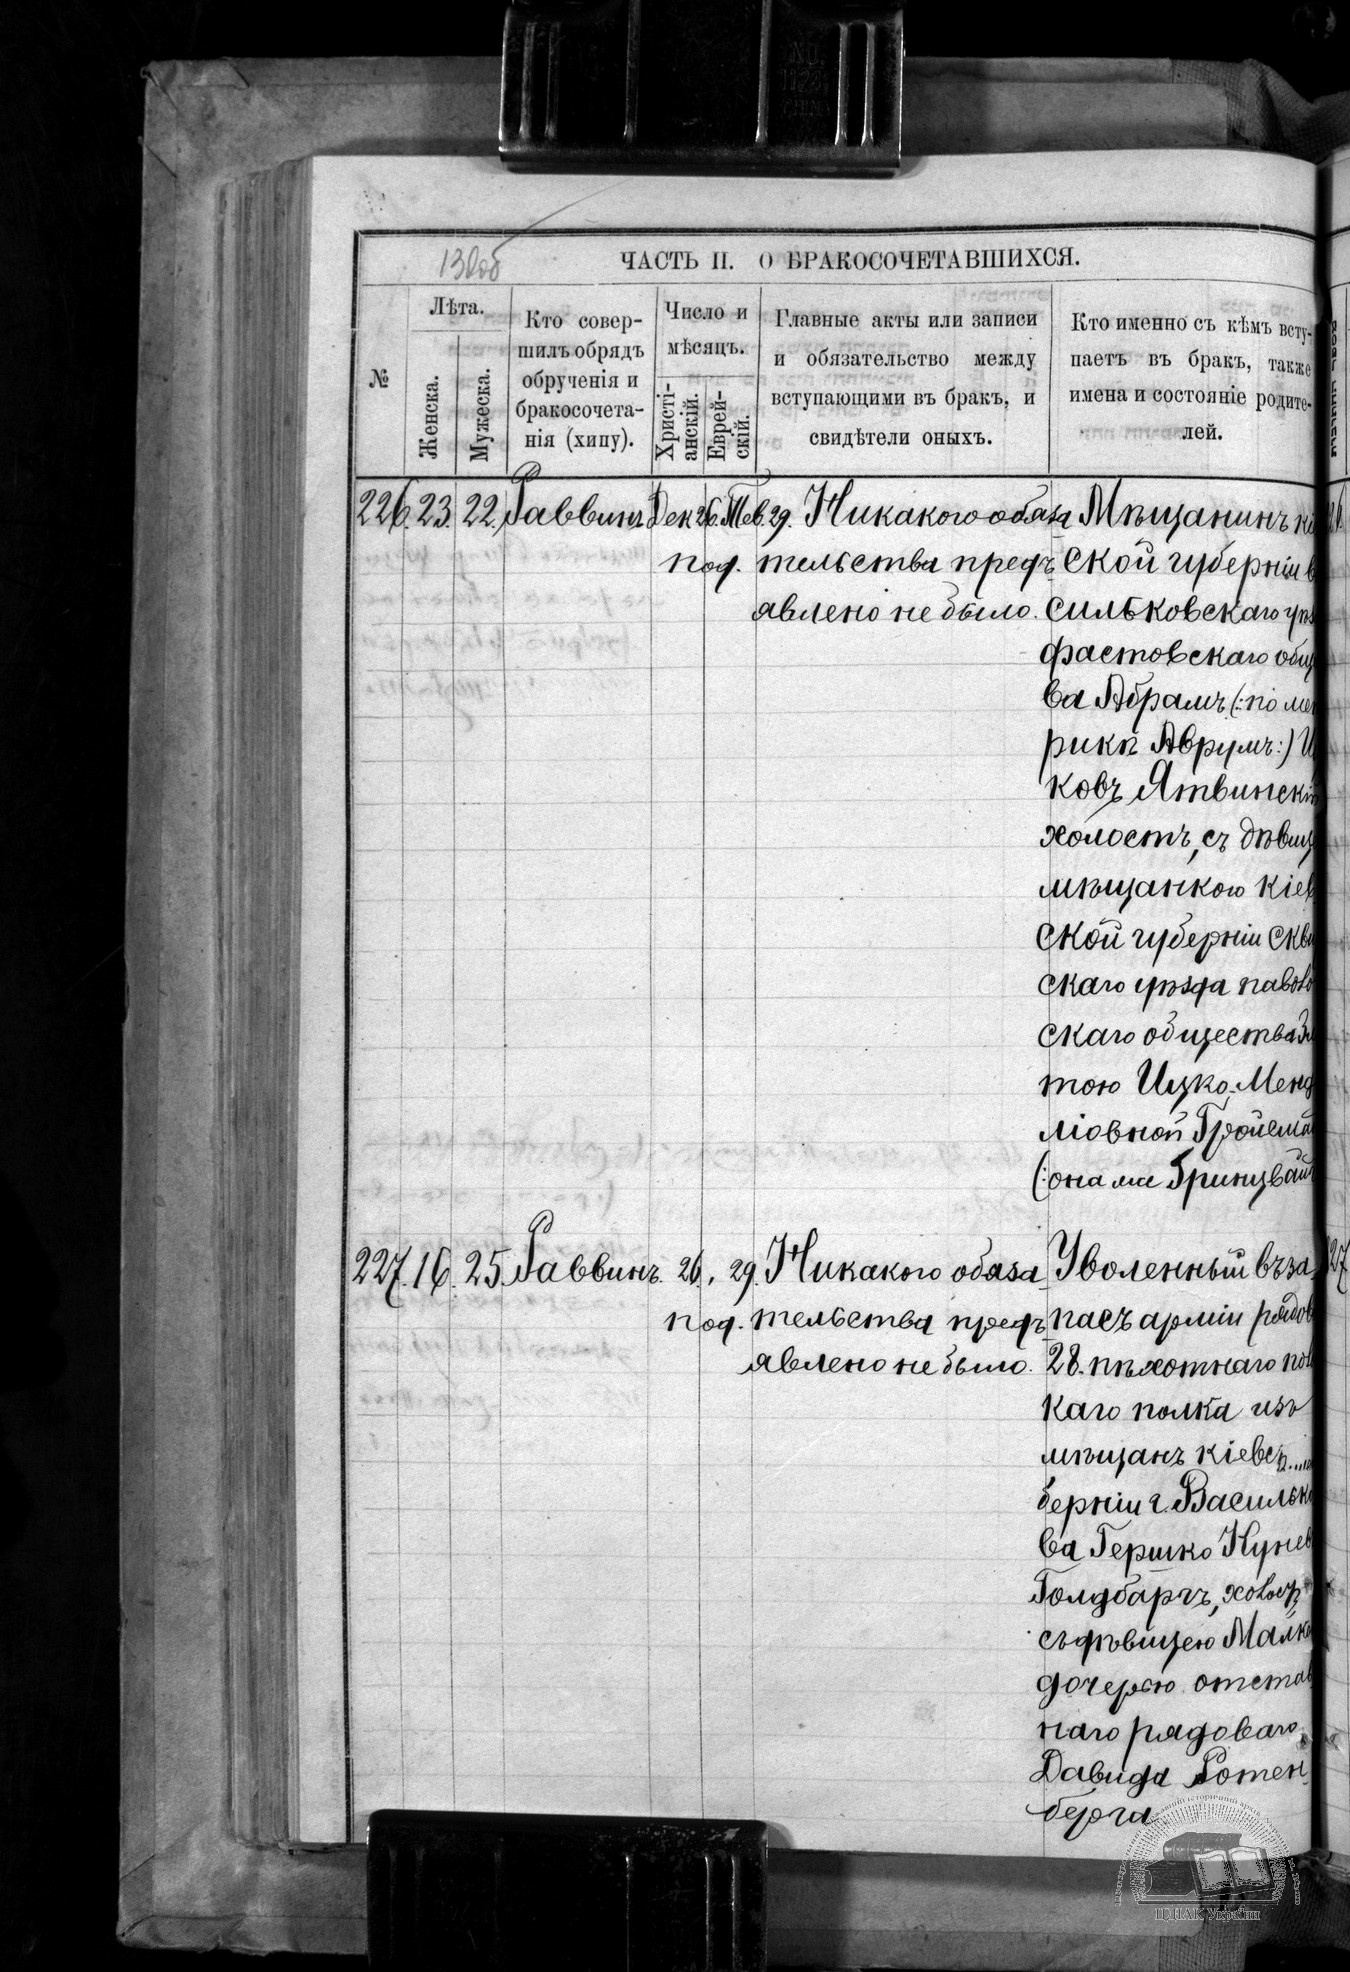 130об
ЧАСТЬ II. О БРАКОСОЧЕТАВШИХСЯ.
№
Лѣта.
Женска.
Мужеска.
Кто совер-
шилъ обрядъ
обрученія и
бракосочета-
нія (хипу).
Число и
мѣсяцъ.
Христі-
анскій.
Еврей-
скій.
Главные акты или записи
и обязательство между
вступающими въ бракъ, и
свидѣтели оныхъ.
Кто именно съ кѣмъ всту-
паетъ въ бракъ, также
имена и состояніе родите-
лей.
226. 23. 22. Раввинъ Дек 26. Тев. 29. Никакого обяза Мѣщанинъ кі
под. тельства предъ ской губерніи в
явлено не было. сильковскаго уѣз
фастовскаго общ
ва Абрамъ (: по мет
рикѣ Аврумъ :) И
ковъ Ятвинскій
холостъ, съ дѣвиц
мѣщанкою кіев
ской губерніи скви
скаго уѣзда паволо
скаго общества
тою Ицко-Менд
ліовной Гройсма
(: она же Гринцвайг
227. 16. 25. Раввинъ. 26. 29. Никакого обяза Уволенный въ за
под. тельства предъ пасъ арміи рядов
явлено не было. 28. пѣхотнаго пол
каго полка изъ
мѣщанъ кіевс
берніи г. Василько
ва Гершко Кунев
Голдбаргъ, холост
съ дѣвицею Малко
дочерью отстав
наго рядоваго
Давида Ротен
берга
ЦДІАК України